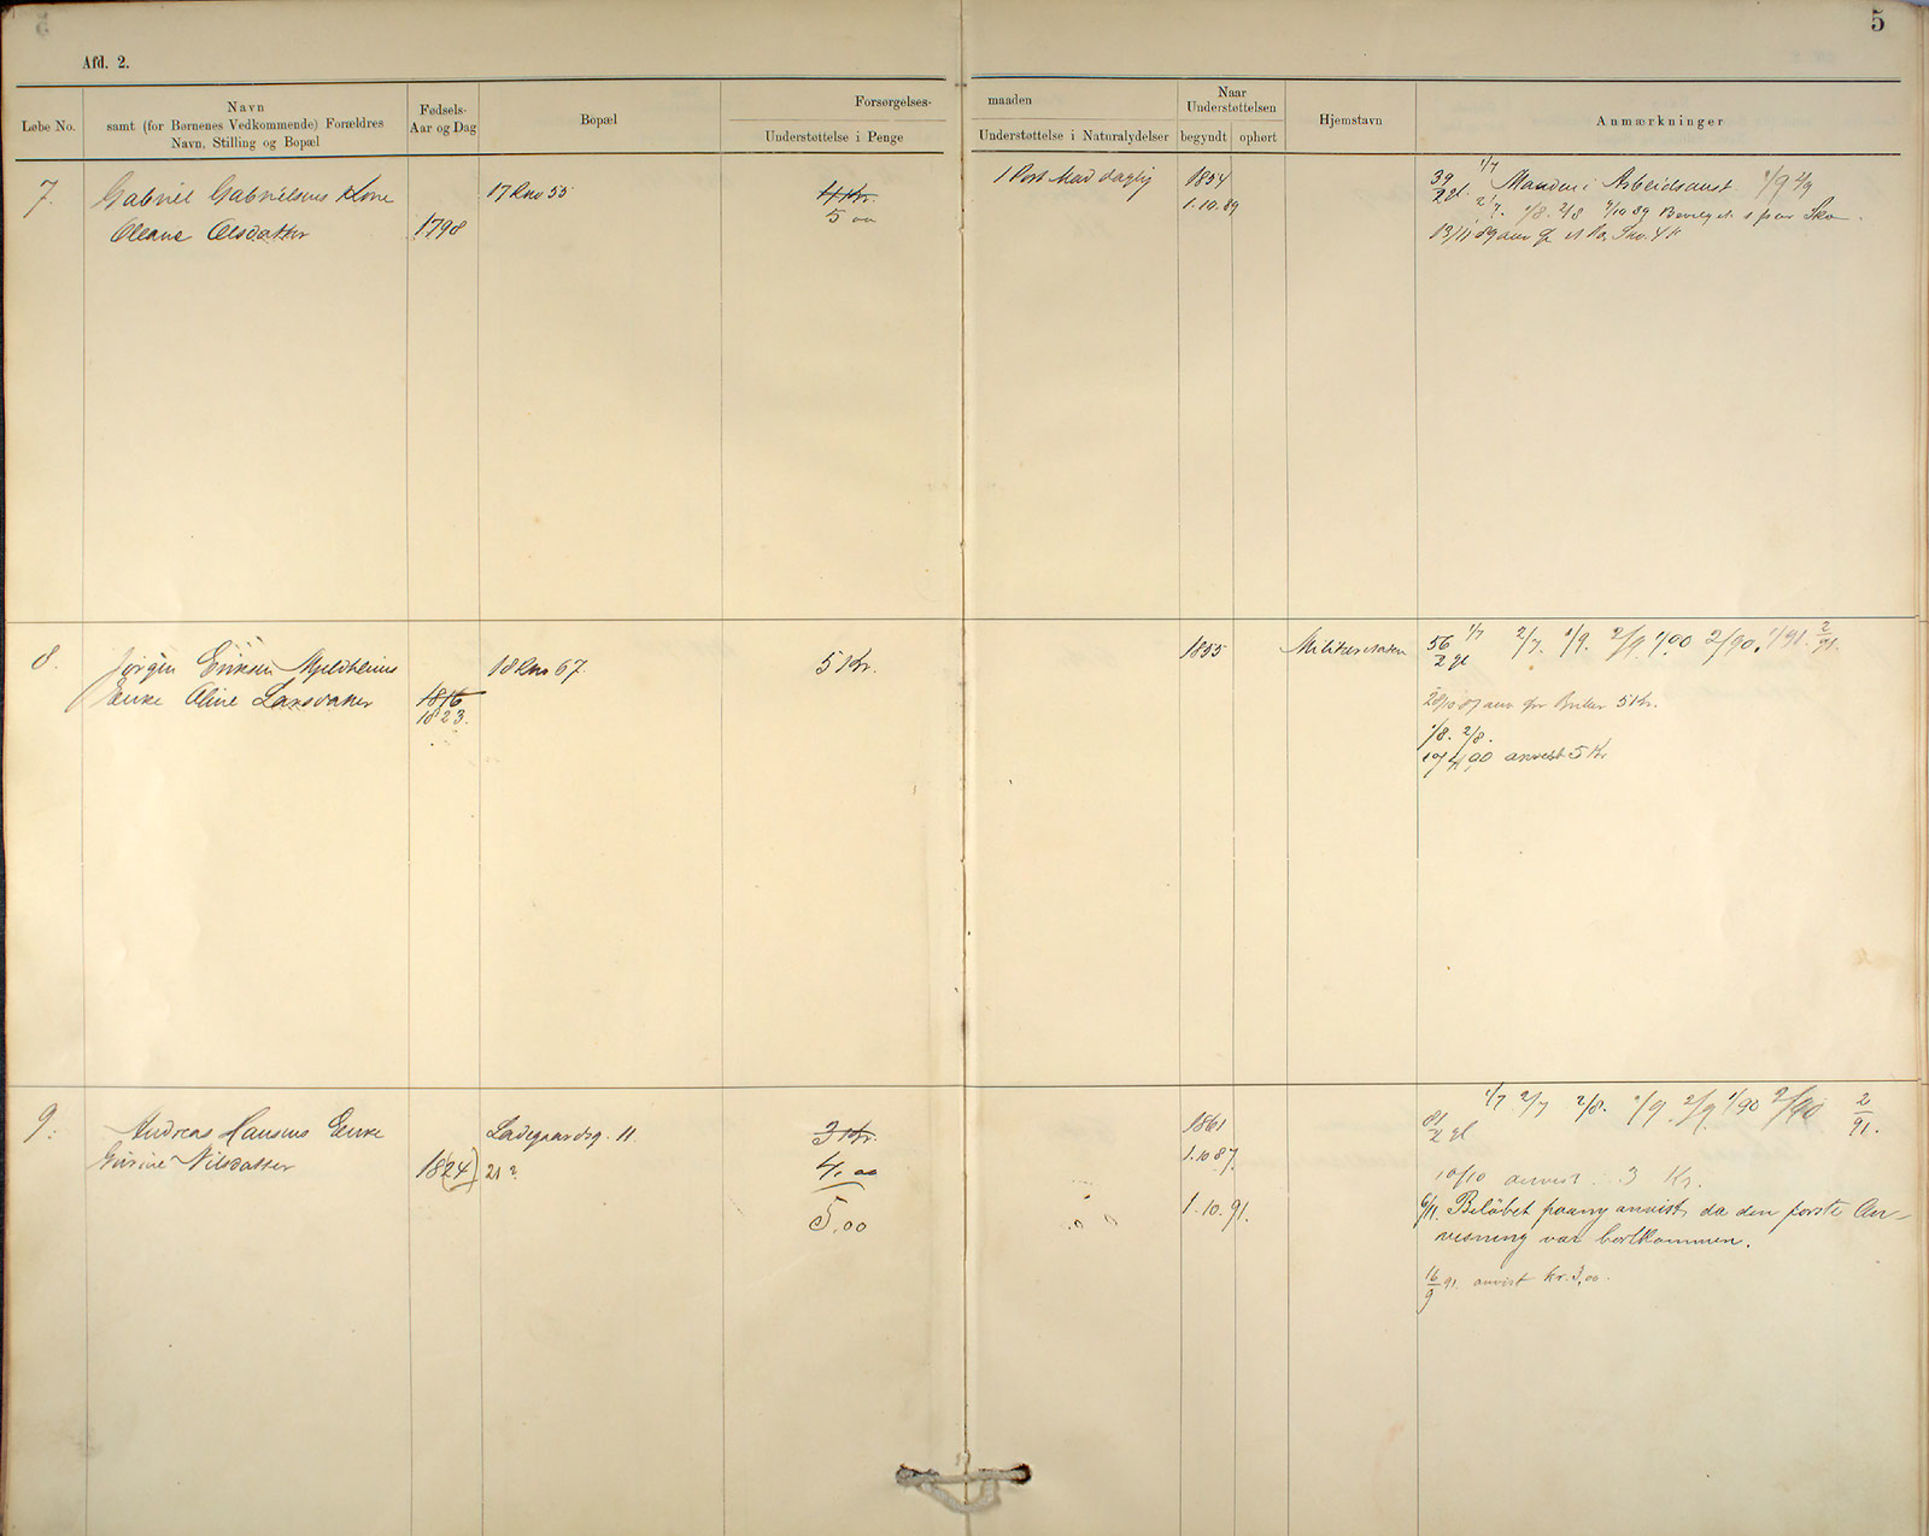 5
Afd. 2.
Løbe No.
Navn
samt (for Børnenes Vedkommende) Forældres
Navn, Stilling og Bopæl
Fødsels-
Aar og Dag
Bopæl
Forsørgelses-
Understøttelse i Penge
maaden
Understøttelse i Naturalydelser
Naar
Understøttelsen
begyndt
ophørt
Hjemstavn
Anmærkninger
7.
Gabriel Gabrielsens Kone
Oleane Olsdatter
1798
17 Rno 55
4 Kr.
5 00
1 Port Mad daglig
1854
1.10.89
39 1/7 Manden i Arbeidsanst. 1/9 2/9
2 gl. 2/7. 1/8. 2/8 9/10 89 Bevilget 1 par Sko
13/11 89 anv for et Par Sko. 4 K
8.
Jørgen Eriksen Mjeldheims
Enke Oline Larsdatter
1816
1823.
18 Rno 67.
5 Kr.
1855
Militæretaten
56 1/7 2/7. 1/9. 2/9 1/90 2/90. 1/91. 2/91.
2 gl
28/10 87 anv for Briller 5 Kr.
1/8. 2/8.
90 anvist 5 Kr
9.
Andreas Hansens Enke
Nilsdatter
1824
Ladegaardsg. 11.
21?
3 Kr.
4,00
5,00
1861
1.10 87.
1.10.91.
81 1/7 2/7 2/8. 1/9. 2/9. 1/90 2/90 2/91.
2 gl
10/10 anvist 3 Kr.
6/11. Beløbet paany anvist, da den første An-
visning var bortkommen.
16/9 91. anvist kr. 3,00.